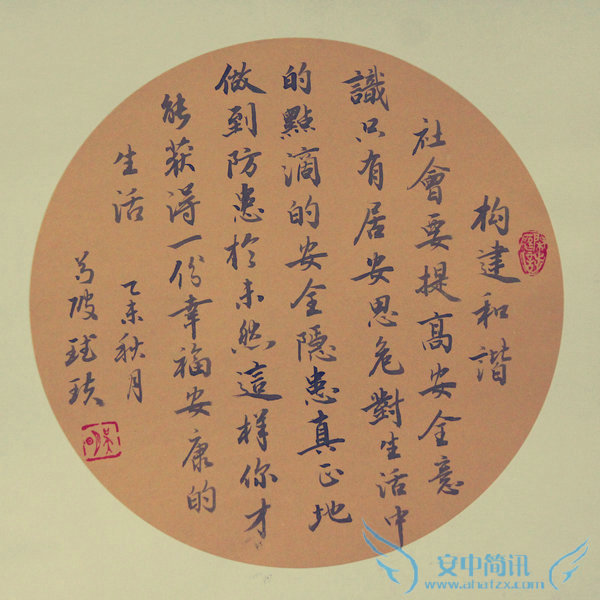 构建和谐
社會要提高安全意
識只有居安思危對生活中
的點滴的安全隱患真正地
做到防患於未然這樣你才
能获得一份幸福安康的
生活
乙未秋月
安中简讯
www.ahatzx.com